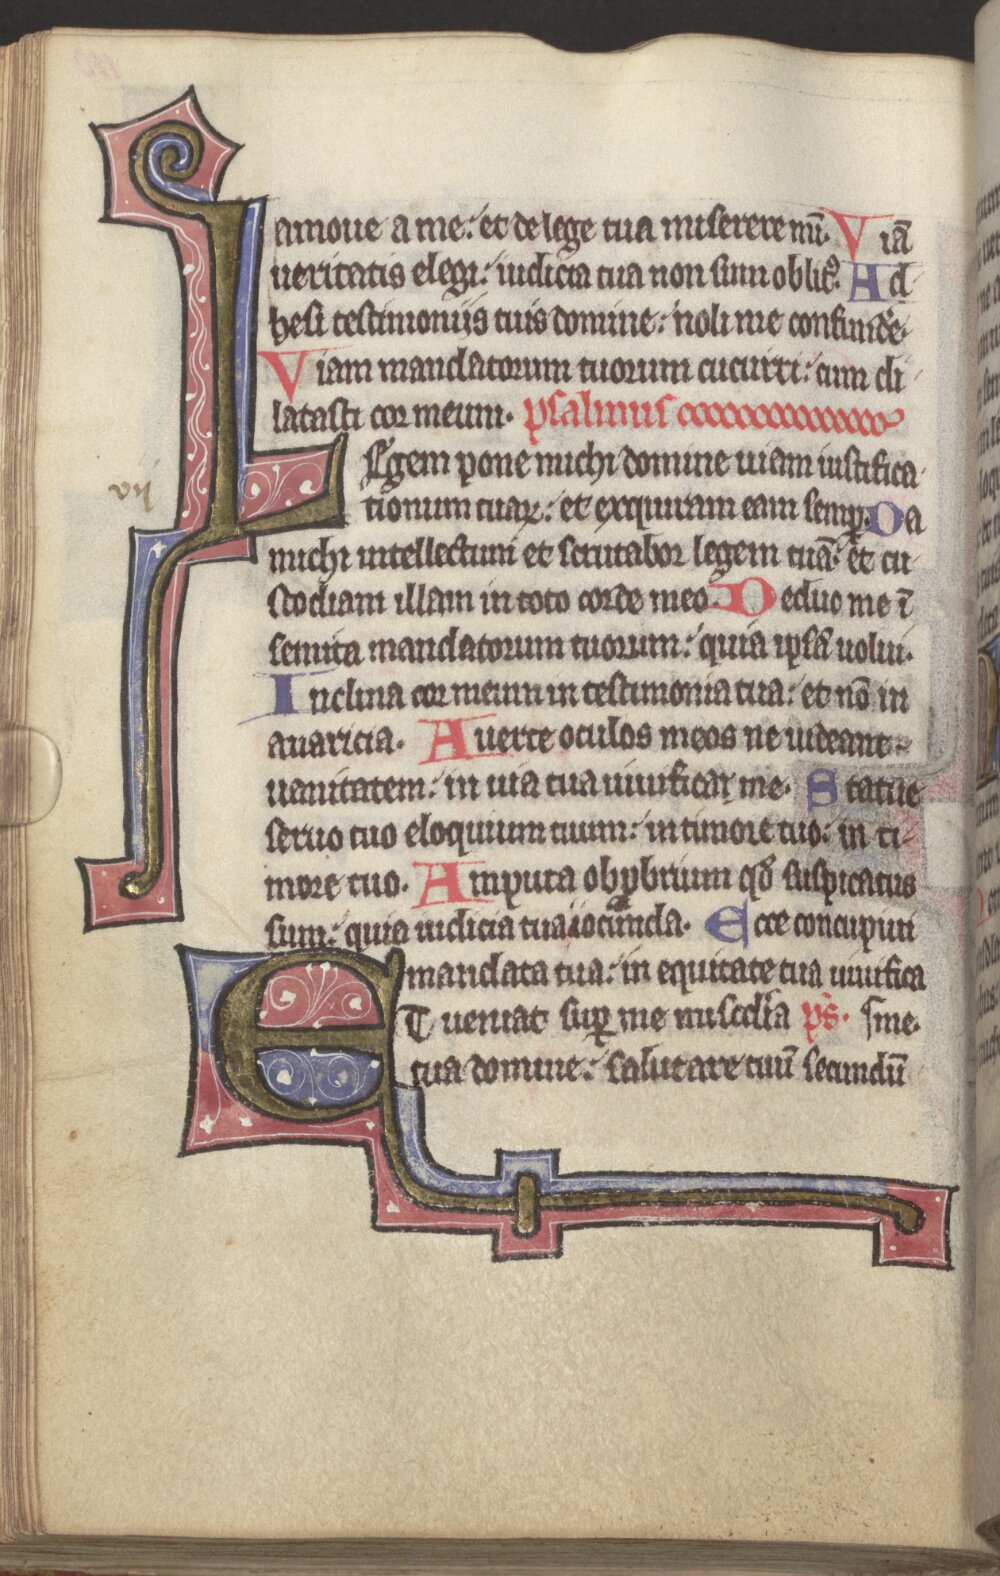 amoue a me: et de lege tua miserere mī. Viā
ueritatis elegi: iudicia tua non sum oblitꝰ. Ad
hesi testimoniis tuis domine: noli me confundẽ.
Viam mandatorum tuorum cucurri: cum di
latasti cor meum. psalmus
vii
LEgem pone michi domine uiam iustifica
tionum tuaꝝ: et exquiram eam semꝑ. Da
michi intellectum et scrutabor legem tuā: et cu
stodiam illam in toto corde meo. Deduc me ī
semita mandatorum tuorum: quia ipsā uolui.
Inclina cor meum in testimonia tua: et nō in
auaricia. Auerte oculos meos ne uideant
uanitatem: in uia tua uiuificar me. Statue
seruo tuo eloquium tuum: in timore tuo: in ti
more tuo. Amputa obꝓbrium qd̄ suspicatus
sum: quia iudicia tua iocunda. Ecce concupiui
mandata tua: in equitate tua uiuifica
ET ueniat suꝑ me misc̄dia ps̄. me.
tua domine: salutare tuū secundū